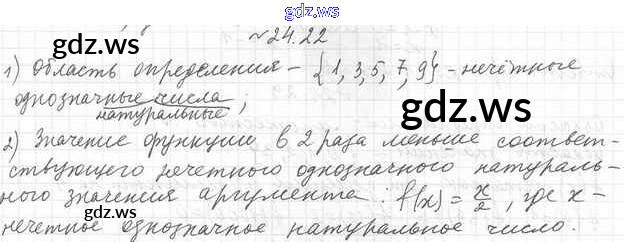 gdz.ws
№24.22
gdz.ws gdz.ws
1) Область определения – {1, 3, 5, 7, 9} – нечётные
однозначные числа ;
натуральные
gdz.ws
2) Значение функции в 2 раза меньше соответ-
ствующего нечетного однозначного натураль-
ного значения аргумента : f(x) = x/2 , где x –
gdz.ws gdz.ws
нечетное однозначное натуральное число.